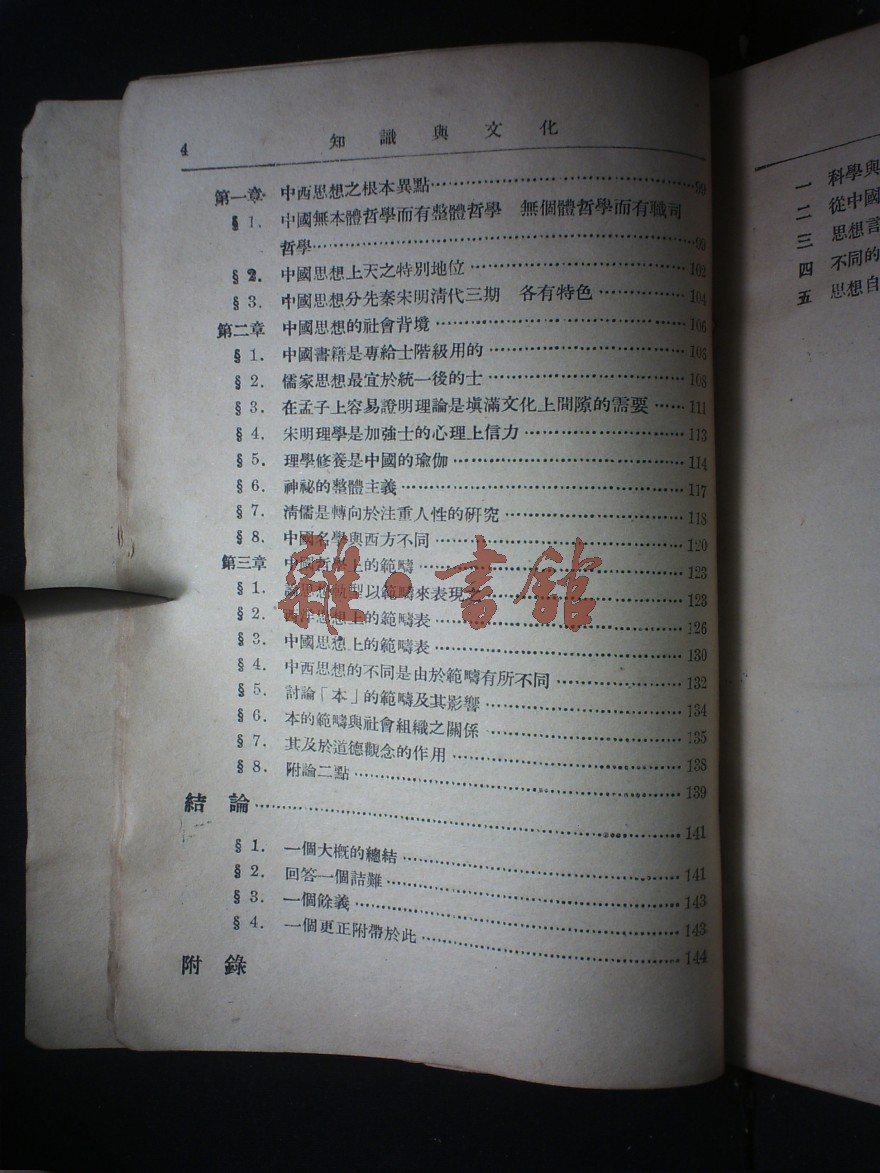 4 知識與文化
第一章 中西思想之根本異點……99
§ 1. 中國無本體哲學而有整體哲學 無個體哲學而有職司
哲學……99
§ 2. 中國思想上天之特別地位……102
§ 3. 中國思想分先秦宋明清代三期 各有特色……104
第二章 中國思想的社會背境……106
§ 1. 中國書籍是專給士階級用的……105
§ 2. 儒家思想最宜於統一後的士……108
§ 3. 在孟子上容易證明理論是填滿文化上間隙的需要……111
§ 4. 宋明理學是加強士的心理上信力……113
§ 5. 理學修養是中國的瑜伽……114
§ 6. 神祕的整體主義……117
§ 7. 清儒是轉向於注重人性的研究……118
§ 8. 中國名學與西方不同……120
第三章 中國哲學上的範疇……123
§ 1. 思想 型以範疇來表現之……123
§ 2. 西洋思想上的範疇表……126
§ 3. 中國思想上的範疇表……130
§ 4. 中西思想的不同是由於範疇有所不同……132
§ 5. 討論「本」的範疇及其影響……134
§ 6. 本的範疇與社會組織之關係……135
§ 7. 其及於道德觀念的作用……138
§ 8. 附論二點……139
結論……141
§ 1. 一個大概的總結……141
§ 2. 回答一個詰難……143
§ 3. 一個餘義……143
§ 4. 一個更正附帶於此……144
附錄
一 科學與
二 從中國
三 思想言
四 不同的
五 思想自
雜·書館